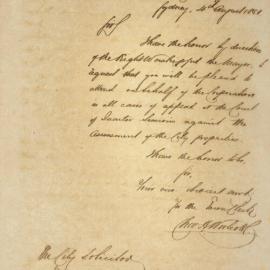 Sydney, 4th August 18
Sir,
I have the honor by direction
of the Right Worshipful the Mayor, to
request that you will be pleased to
attend on behalf of the Corporation
in all cases of appeal at the Court
of Quarter Sessions against the
Assessment of the City properties
I have the honor to be
Sir,
Your obedient
for the Town Clerk
The City Solicitor